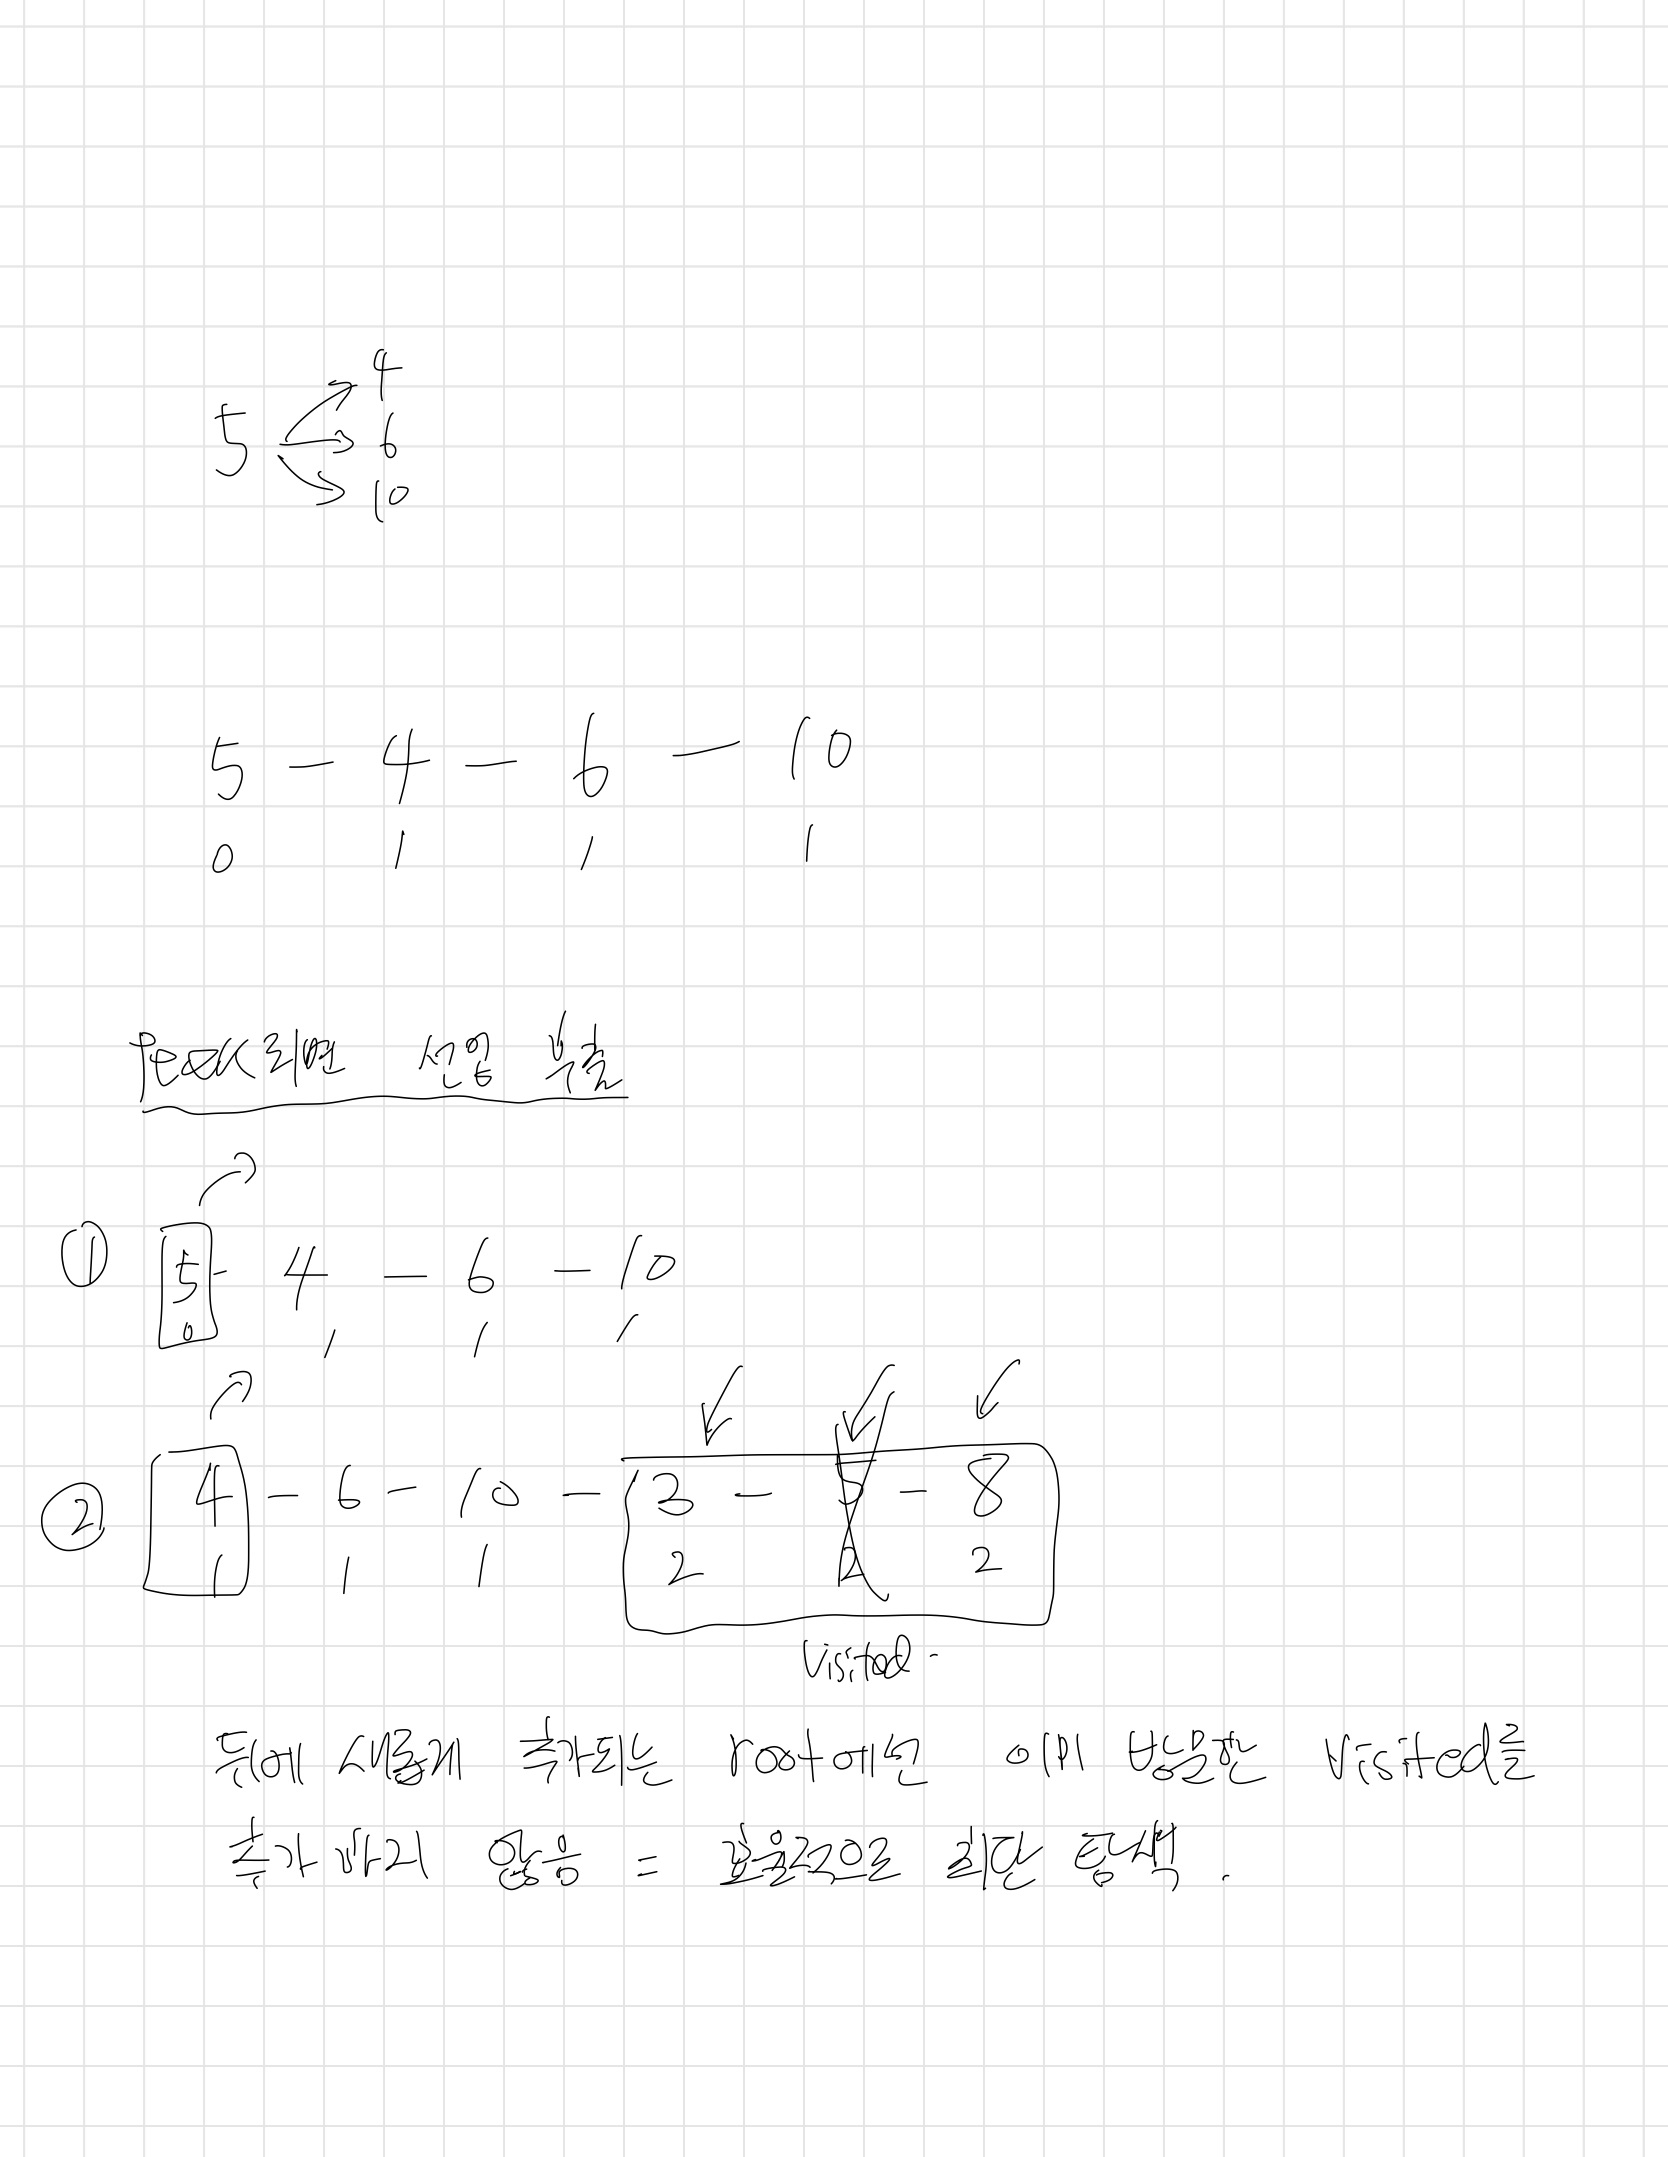 4
5 6
10
5 - 4 - 6 - 10
0 1 1 1
선입 부출
① 5 - 4 - 6 - 10
0 1 1 1
② 4 - 6 - 10 - 3 - 5 - 8
1 1 1 2 2 2
visited.
뒤에 새롭게 추가되는 root에선 이미 방문한 visited를
추가 하지 않음 = 효율적으로 최단 탐색.